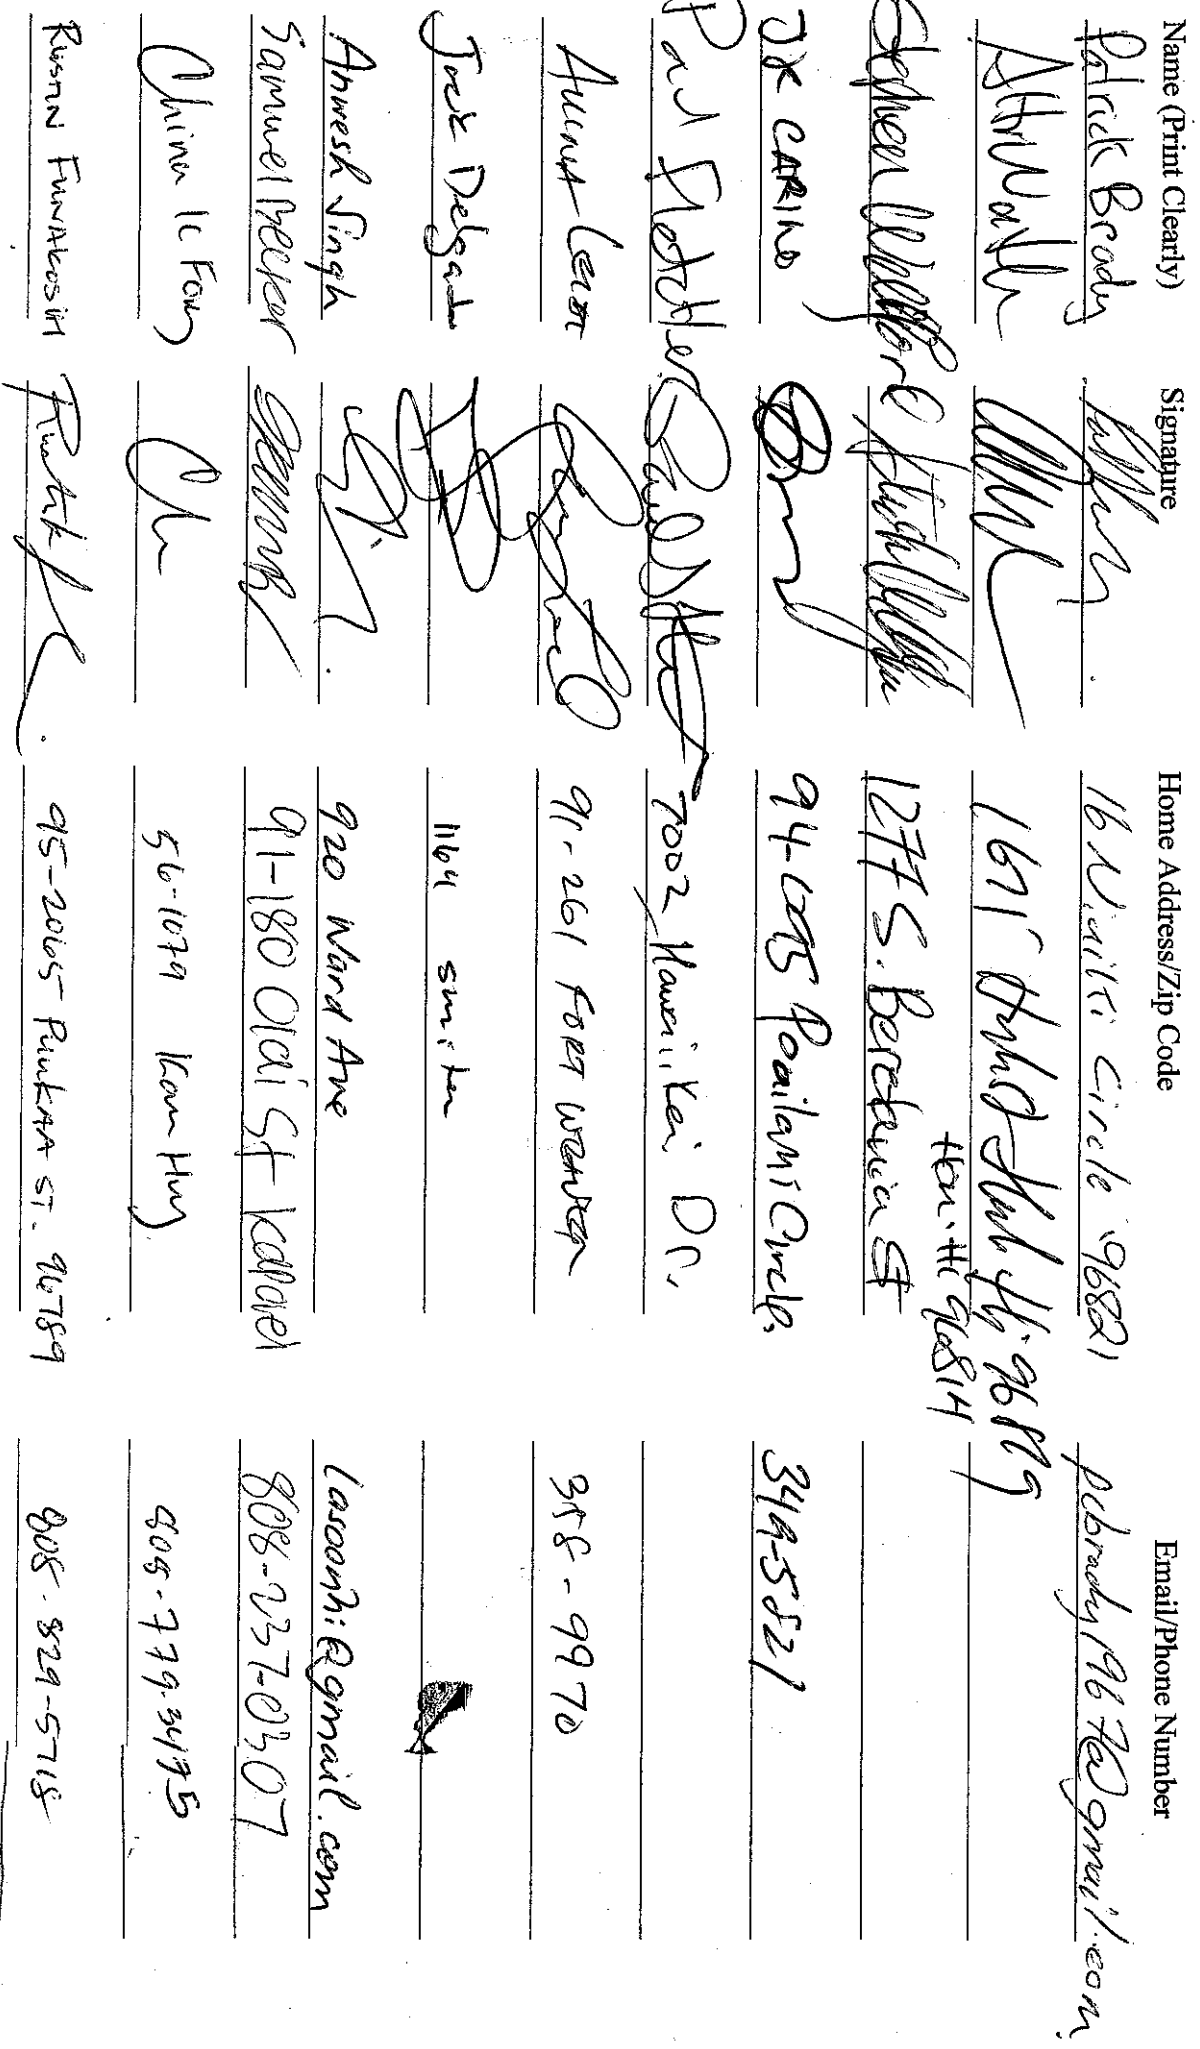 Name (Print Clearly) Signature Home Address/Zip Code Email/Phone Number
Patrick Brady 16 Niuiki Circle 96821 pcbrady1967@gmail.com
1615 96819
Stephen 1277 S. Beretania St
Hon. Hi 96814
JR CARINO 94-1095 Poailani Circle. 349-5821
Paul 7002 Hawaii Kai Dr.
August Leon 91-261 FORT WEAVER 358-9970
Jack Delgado 1164 smiten
Anwesh Singh 920 Ward Ave lasoonhi@gmail.com
Samuel Becker 91-180 Olai St Kapolei 808-237-0307
56-1079 Kam Hwy 808-779-3475
FUNAKOSHI 95-2065 St. 96789 808-829-5718